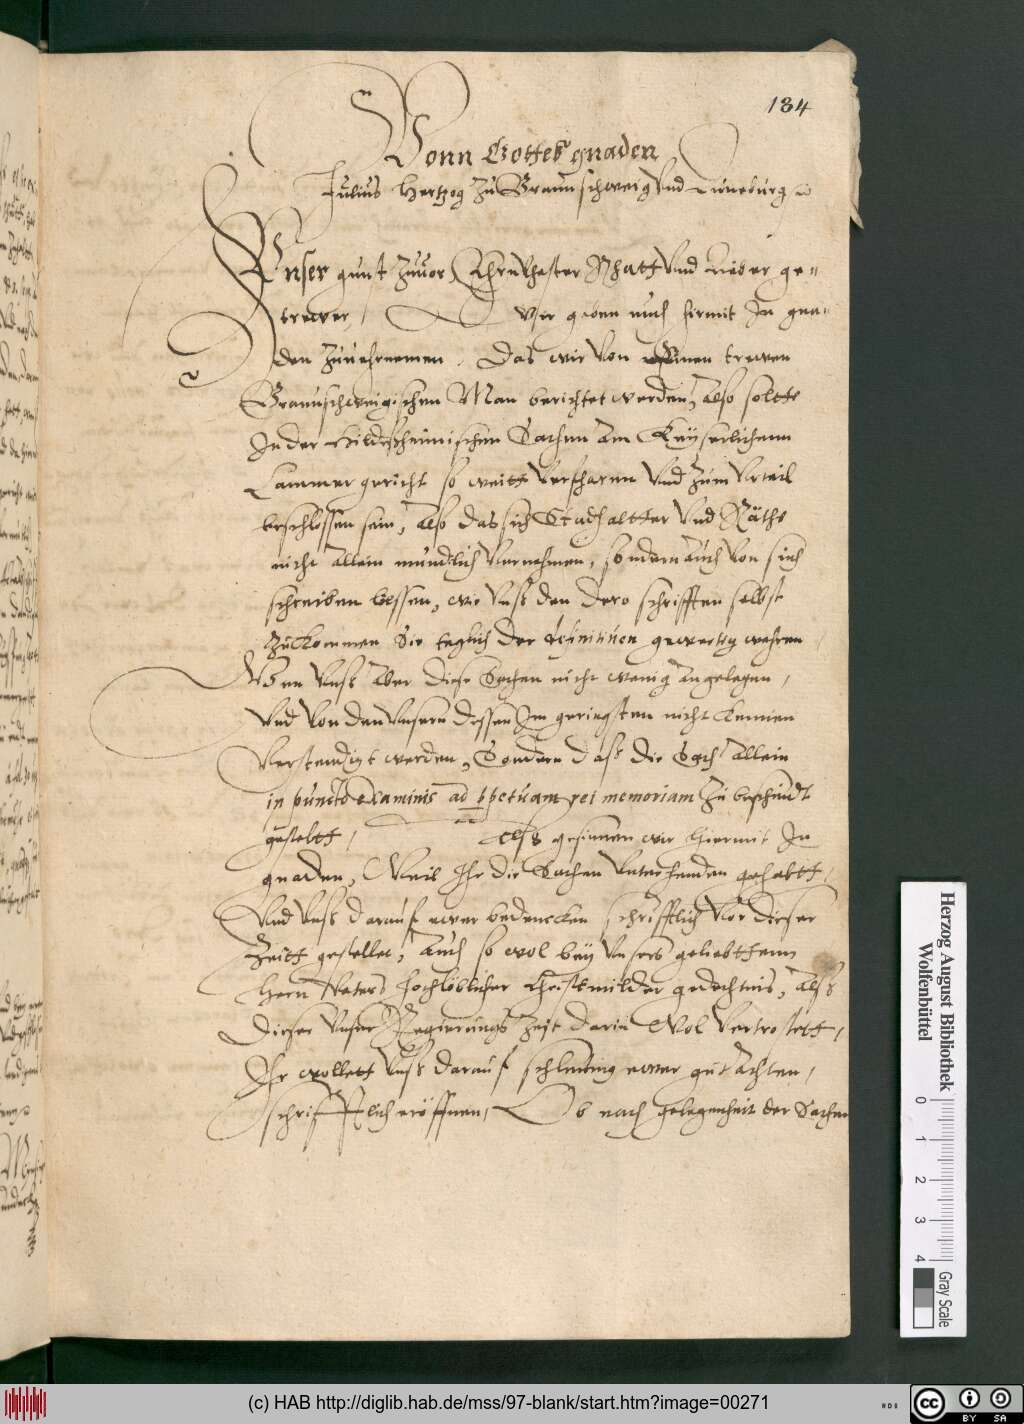 184
Vonn Gottes gnaden
Julius Hertzog zu Braunschweig und Luneburg
Unser gunst zuvor, Ehrnvhester Rhatt und Lieber ge-
trewer, Wir geben euch hirmit In gna-
den zuvernemen, Das wir von einen trewen
Braunschweigischen Man berichtet werden, Also soltte
In der Hildesheimischen Sachen Am Keyserlichenn
Cammergericht so weitt verfharen und zum Urteil
beschlossen sein, Also das sich Stadhaltter und Räthe
nicht allein mundtlich vernehmen, sondern Auch von sich
schreiben lassen, wie unß den dero schrifften selbst
zukommen Sie teglich der definitiven gewertig wehren,
Wen unß Aber diese Sachen nicht wenig Angelegen,
Und von den Unsern dessen Im geringsten nicht kennen
verstendigt werden, Sondern daß die Sach Allein
in puncto Examinis ad ppetuam rei memoriam zu
gesteltt, Alß gesinnen wir hiermit In
gnaden, Weil Ihr die Sachen Unterhanden gehabtt,
Und unß darauf ewer bedencken schrifftlich vor dieser
Zeitt gestellet, Auch so wol bey Unsers geliebttenn
Hern Vaters hochlöblicher Christmilder gedechtnis, Alß
dieser unser Regierungs Zeit darin Wol vertrostett,
Ihr wollett unß darauf schleunig ewer gut Achten,
schrifftlich eröffnen, Ob nach gelegenheit der Sachen
Herzog August Bibliothek
Wolfenbüttel
0 1 2 3 4
Gray Scale
(c) HAB http://diglib.hab.de/mss/97-blank/start.htm?image=00271
cc BY SA